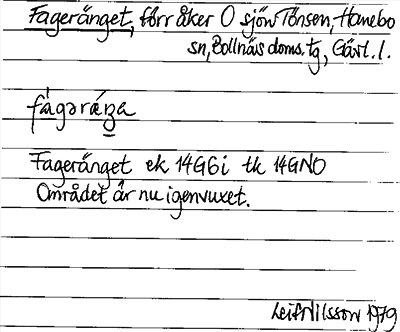 Fageränget, förr åker O sjön Tönsen, Hanebo
sn, Bollnäs doms. tg, Gävl. l.
Fageränget ek 14G6i tk 14GNO
Området är nu igenvuxet.
Leif Nilsson 1979